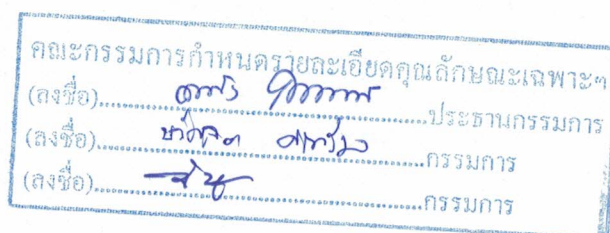 คณะกรรมการกำหนดรายละเอียดคุณลักษณะเฉพาะฯ
(ลงชื่อ)....................ประธานกรรมการ
(ลงชื่อ)....................กรรมการ
(ลงชื่อ)....................กรรมการ